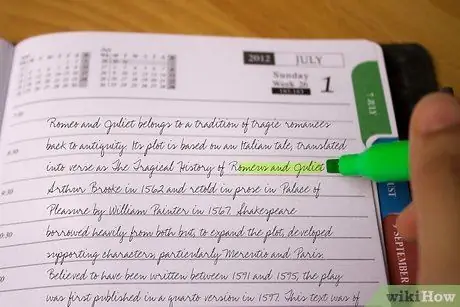 2012 JULY
Sunday
Week 26
1
7 JULY
Romeo and Juliet belongs to a tradition of tragic romances
back to antiquity. Its plot is based on an Italian tale, translated
into verse as The Tragical History of Romeus and Juliet
Arthur Brooke in 1562 and retold in prose in Palace of
Pleasure by William Painter in 1567. Shakespeare
borrowed heavily from both but, to expand the plot, developed
supporting characters, particularly Mercutio and Paris.
Believed to have been written between 1591 and 1595, the play
was first published in a quarto version in 1597. This text was of
UST
SEPTEMBER
wikiHow